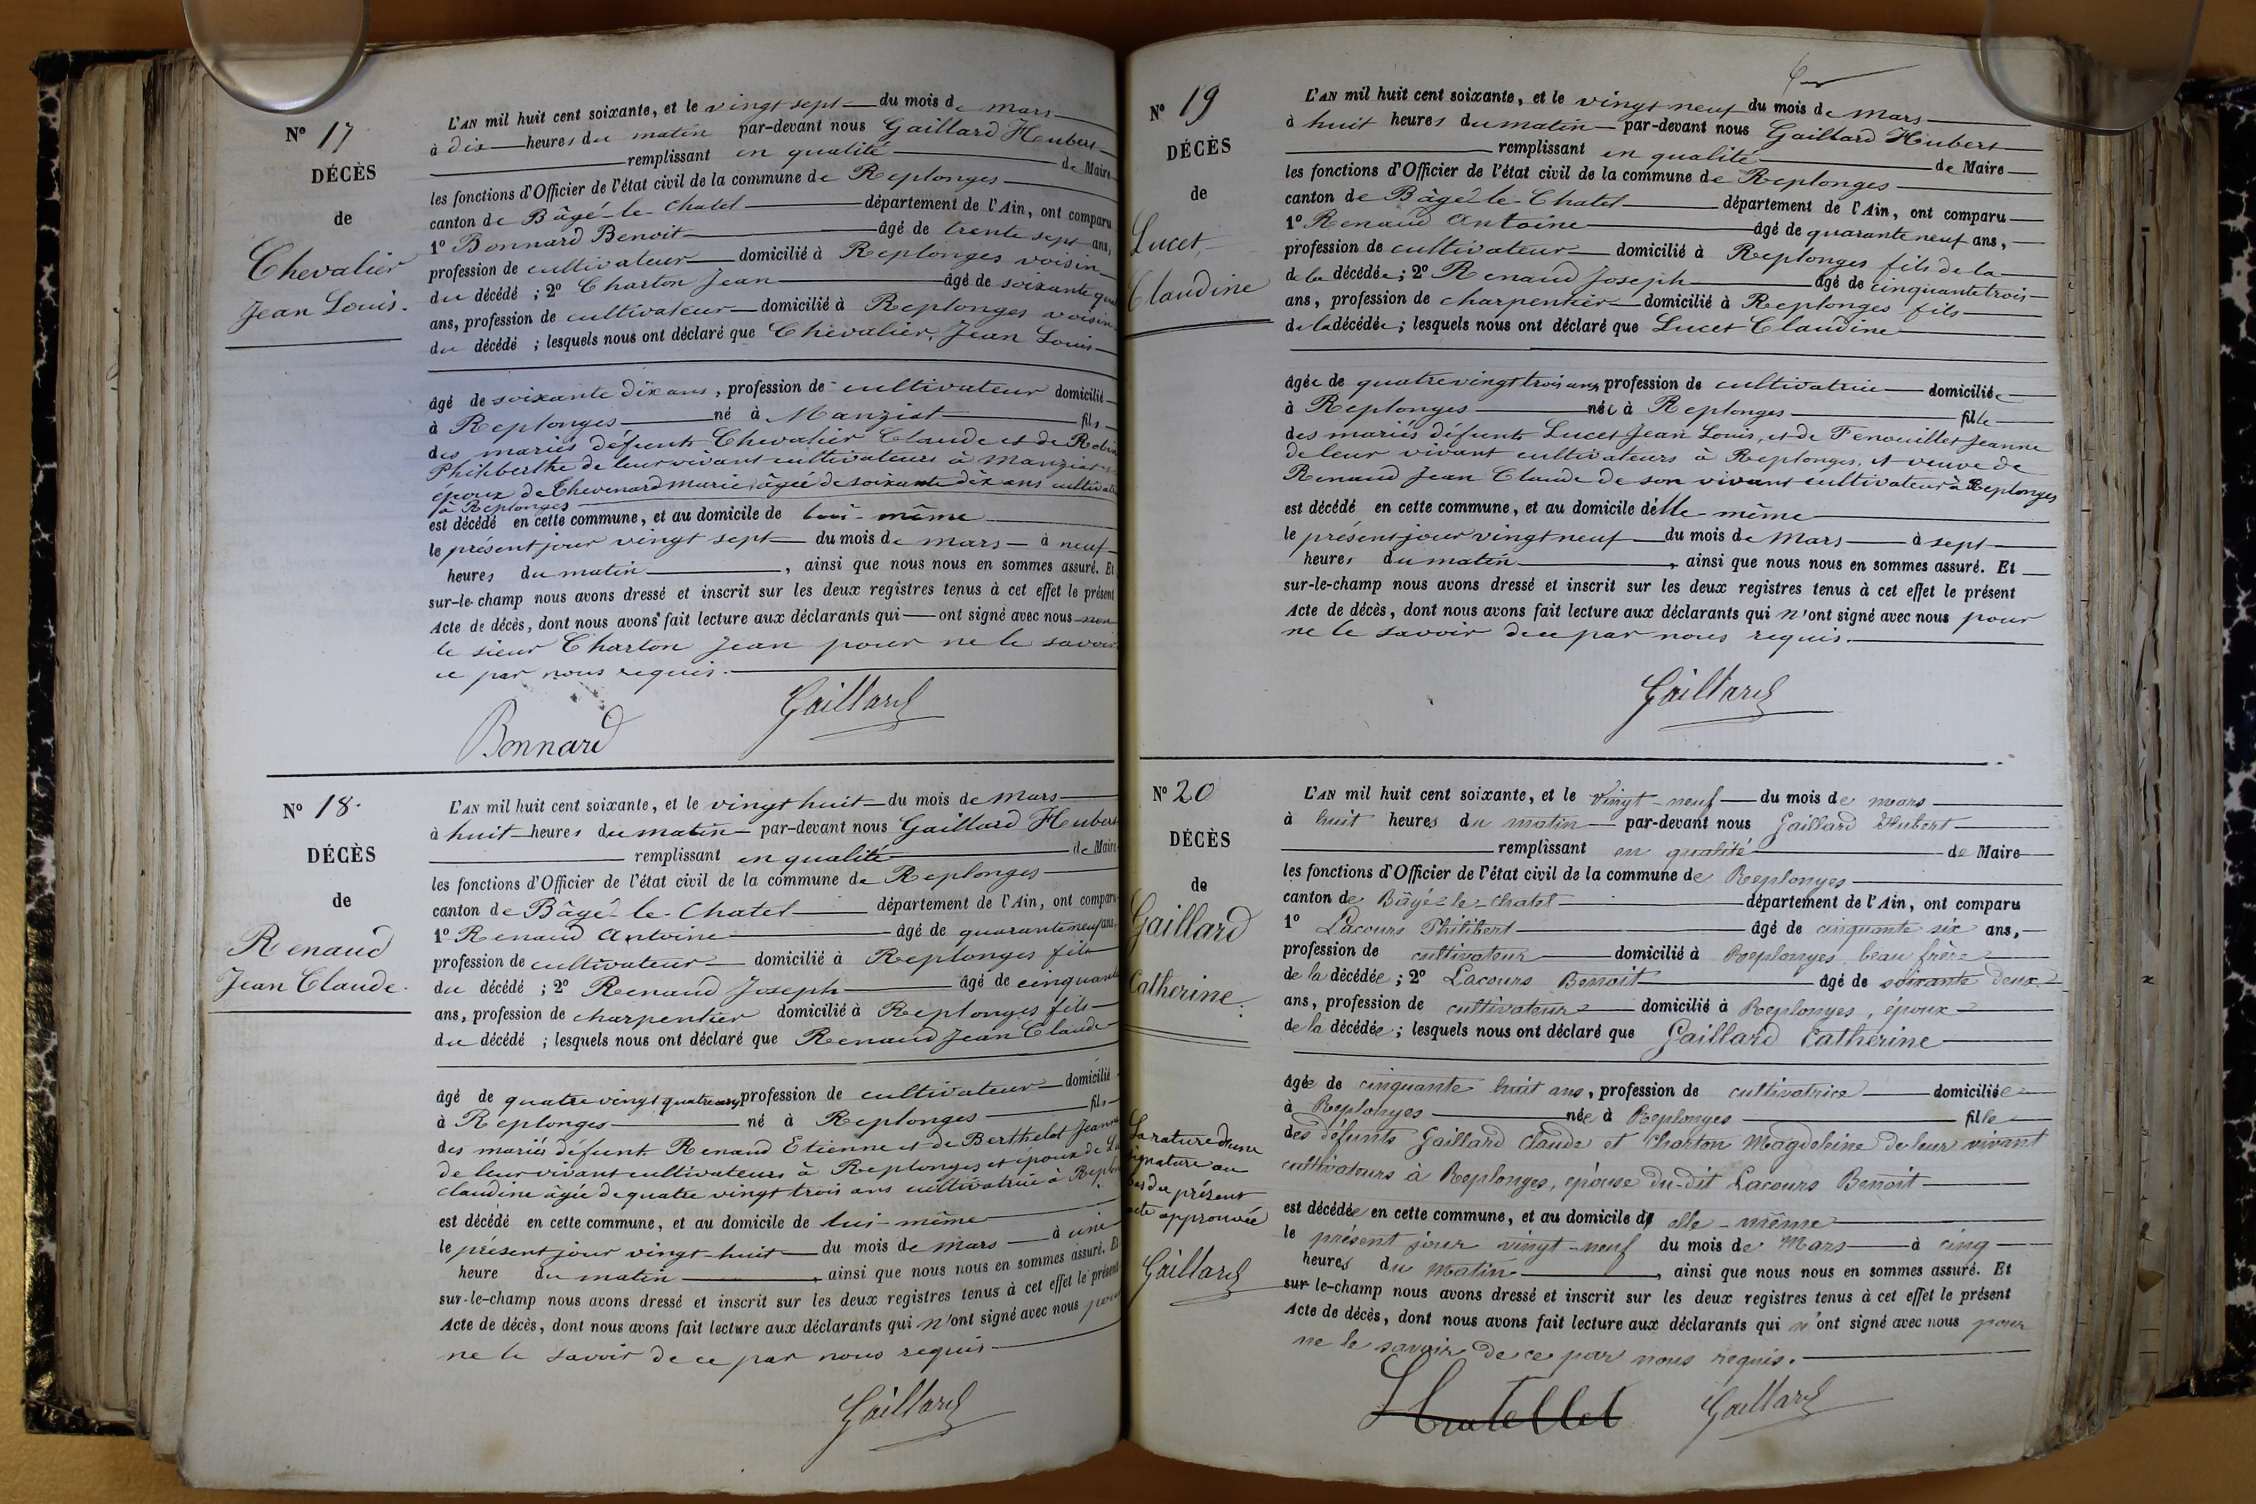 N° 17
DÉCÈS
de
Chevalier
Jean Louis.
L'AN mil huit cent soixante, et le vingt sept du mois de mars
à dix heures du matin par-devant nous Gaillard Hubert
remplissant en qualité de Maire
les fonctions d'Officier de l'état civil de la commune de Replonges
canton de Bâgé-le-Chatel département de l'Ain, ont comparu
1° Bonnard Benoit âgé de trente sept ans,
profession de cultivateur domicilié à Replonges voisin
du décédé ; 2° Charton Jean âgé de soixante
ans, profession de cultivateur domicilié à Replonges voisin
du décédé ; lesquels nous ont déclaré que Chevalier, Jean Louis
âgé de soixante dix ans, profession de cultivateur domicilié
à Replonges né à Manziat fils
des mariés défunts Chevalier Claude et de
Philiberthe de leur vivant cultivateurs à Manziat
époux de Thevenard Marie, âgée de soixante dix ans
à Replonges
est décédé en cette commune, et au domicile de lui-même
le présent jour vingt sept du mois de mars à neuf
heures du matin, ainsi que nous nous en sommes assuré. Et
sur-le-champ nous avons dressé et inscrit sur les deux registres tenus à cet effet le présent
Acte de décès, dont nous avons fait lecture aux déclarants qui ont signé avec nous non
le sieur Charton Jean pour ne le savoir
ce par nous requis.
Bonnard Gaillard
N° 18.
DÉCÈS
de
Renaud
Jean Claude.
L'AN mil huit cent soixante, et le vingt huit du mois de mars
à huit heures du matin par-devant nous Gaillard Hubert
remplissant en qualité de Maire
les fonctions d'Officier de l'état civil de la commune de Replonges
canton de Bâgé-le-Chatel département de l'Ain, ont comparu
1° Renaud Antoine âgé de quarante neuf ans,
profession de cultivateur domicilié à Replonges fils
du décédé ; 2° Renaud Joseph âgé de cinquante
ans, profession de charpentier domicilié à Replonges fils
du décédé ; lesquels nous ont déclaré que Renaud Jean Claude
âgé de quatre vingt quatre ans, profession de cultivateur domicilié
à Replonges né à Replonges fils
des mariés défunts Renaud Etienne et de Berthelot Jeanne
de leur vivant cultivateurs à Replonges et époux de
Claudine âgée de quatre vingt trois ans cultivatrice à
est décédé en cette commune, et au domicile de lui-même
le présent jour vingt-huit du mois de mars à une
heure du matin, ainsi que nous nous en sommes assuré. Et
sur-le-champ nous avons dressé et inscrit sur les deux registres tenus à cet effet le présent
Acte de décès, dont nous avons fait lecture aux déclarants qui n'ont signé avec nous pour
ne le savoir de ce par nous requis
Gaillard
N° 19
DÉCÈS
de
Lucet,
Claudine
L'AN mil huit cent soixante, et le vingt neuf du mois de mars
à huit heures du matin par-devant nous Gaillard Hubert
remplissant en qualité de Maire
les fonctions d'Officier de l'état civil de la commune de Replonges
canton de Bâgé-le-Chatel département de l'Ain, ont comparu
1° Renaud Antoine âgé de quarante neuf ans,
profession de cultivateur domicilié à Replonges fils de la
de la décédée ; 2° Renaud Joseph âgé de cinquante trois
ans, profession de charpentier domicilié à Replonges fils
de la décédée ; lesquels nous ont déclaré que Lucet Claudine
âgée de quatre vingt trois ans, profession de cultivatrice domiciliée
à Replonges née à Replonges fille
des mariés défunts Lucet Jean Louis, et de Fenouillet Jeanne
de leur vivant cultivateurs à Replonges, et veuve de
Renaud Jean Claude de son vivant cultivateur à Replonges
est décédé en cette commune, et au domicile d'elle-même
le présent jour vingt neuf du mois de Mars à sept
heures du matin, ainsi que nous nous en sommes assuré. Et
sur-le-champ nous avons dressé et inscrit sur les deux registres tenus à cet effet le présent
Acte de décès, dont nous avons fait lecture aux déclarants qui n'ont signé avec nous pour
ne le savoir de ce par nous requis.
Gaillard
N° 20
DÉCÈS
de
Gaillard
Catherine.
L'AN mil huit cent soixante, et le vingt-neuf du mois de mars
à huit heures du matin par-devant nous Gaillard Hubert
remplissant en qualité de Maire
les fonctions d'Officier de l'état civil de la commune de Replonges
canton de Bâgé-le-Chatel département de l'Ain, ont comparu
1° Lacours Philibert âgé de cinquante six ans,
profession de cultivateur domicilié à Replonges, beau frère
de la décédée ; 2° Lacours Benoit âgé de soixante deux
ans, profession de cultivateur domicilié à Replonges, époux
de la décédée ; lesquels nous ont déclaré que Gaillard Catherine
âgée de cinquante huit ans, profession de cultivatrice domiciliée
à Replonges née à Replonges fille
des défunts Gaillard Claude et Charton Magdeleine de leur vivant
cultivateurs à Replonges, épouse du-dit Lacours Benoit
est décédée en cette commune, et au domicile d'elle-même
le présent jour vingt-neuf du mois de Mars à cinq
heures du Matin, ainsi que nous nous en sommes assuré. Et
sur-le-champ nous avons dressé et inscrit sur les deux registres tenus à cet effet le présent
Acte de décès, dont nous avons fait lecture aux déclarants qui n'ont signé avec nous pour
ne le savoir de ce par nous requis.
Gaillard
La rature d'une
signature au
bas du présent
acte approuvée
Gaillard